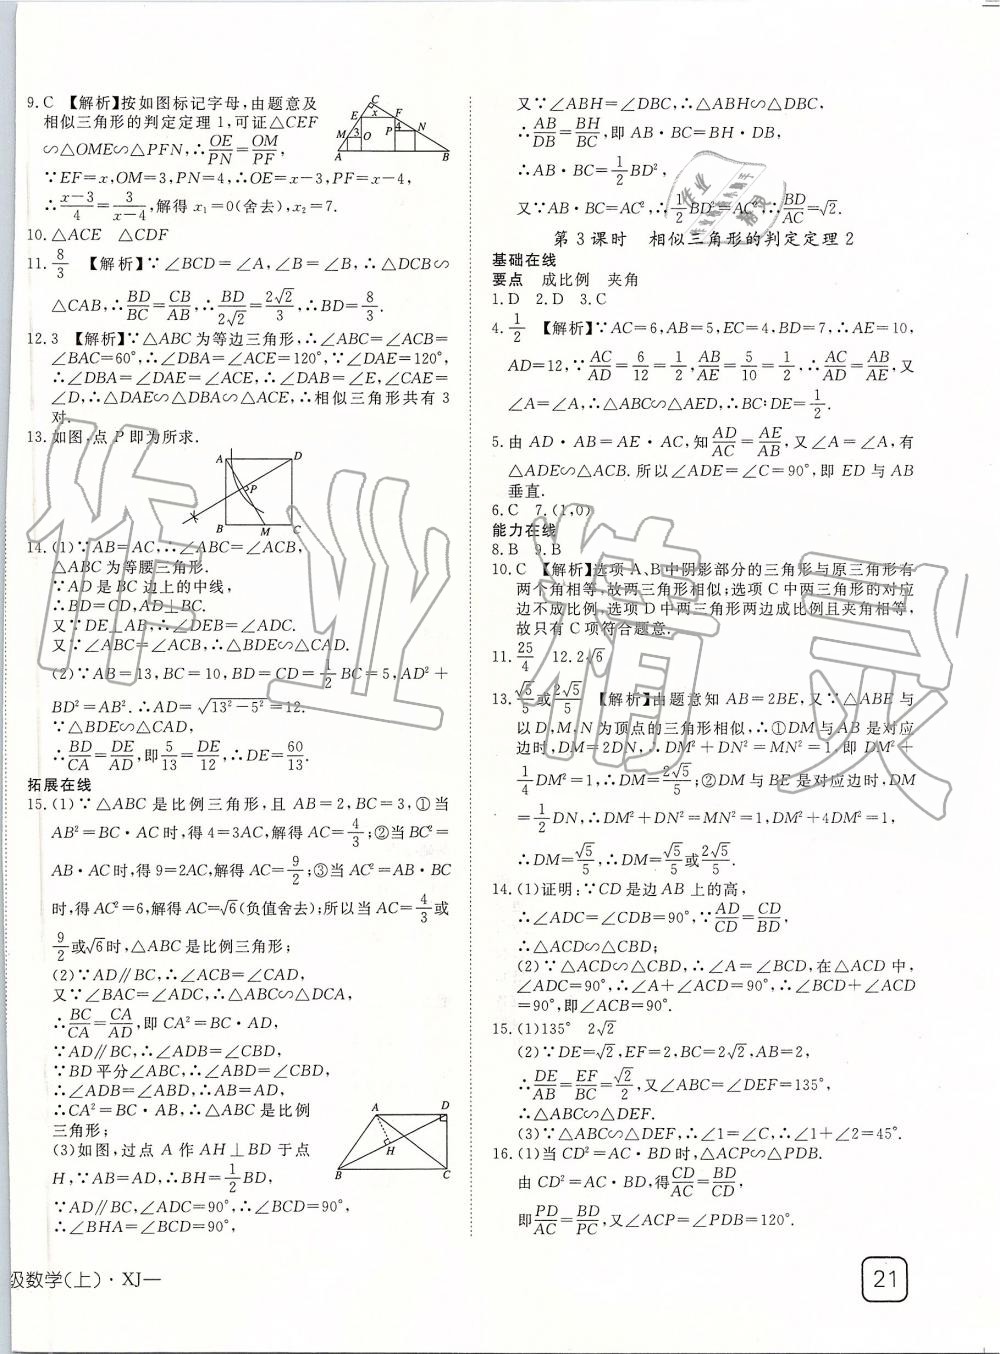 9. C 【解析】按如图标记字母,由题意及
相似三角形的判定定理1,可证△CEF
∽△OME∽△PFN,∴OE/PN=OM/PF,
∵EF=x,OM=3,PN=4,∴OE=x-3,PF=x-4,
∴(x-3)/4=3/(x-4),解得 x₁=0(舍去),x₂=7.
C
E x F
M 3 O P 4 N
A B
10. △ACE △CDF
11. 8/3 【解析】∵∠BCD=∠A,∠B=∠B,∴△DCB∽
△CAB,∴BD/BC=CB/AB,∴BD/2√2=2√2/3,∴BD=8/3.
12. 3 【解析】∵△ABC为等边三角形,∴∠ABC=∠ACB=
∠BAC=60°,∴∠DBA=∠ACE=120°,∵∠DAE=120°,
∴∠DBA=∠DAE=∠ACE,∴∠DAB=∠E,∠CAE=
∠D,∴△DAE∽△DBA∽△ACE,∴相似三角形共有3
对.
13. 如图,点P即为所求.
A D
P
B M C
14. (1)∵AB=AC,∴∠ABC=∠ACB,
△ABC为等腰三角形.
∵AD是BC边上的中线,
∴BD=CD,AD⊥BC.
又∵DE⊥AB,∴∠DEB=∠ADC.
又∵∠ABC=∠ACB,∴△BDE∽△CAD.
(2)∵AB=13,BC=10,BD=CD=1/2BC=5,AD²+
BD²=AB².∴AD=√(13²-5²)=12.
∵△BDE∽△CAD,
∴BD/CA=DE/AD,即5/13=DE/12,∴DE=60/13.
拓展在线
15. (1)∵△ABC是比例三角形,且AB=2,BC=3,①当
AB²=BC·AC时,得4=3AC,解得AC=4/3;②当BC²=
AB·AC时,得9=2AC,解得AC=9/2;③当AC²=AB·BC
时,得AC²=6,解得AC=√6(负值舍去);所以当AC=4/3或
9/2或√6时,△ABC是比例三角形;
(2)∵AD∥BC,∴∠ACB=∠CAD,
又∵∠BAC=∠ADC,∴△ABC∽△DCA,
∴BC/CA=CA/AD,即CA²=BC·AD,
∵AD∥BC,∴∠ADB=∠CBD,
∵BD平分∠ABC,∴∠ABD=∠CBD,
∴∠ADB=∠ABD,∴AB=AD,
∴CA²=BC·AB,∴△ABC是比例
三角形;
(3)如图,过点A作AH⊥BD于点
H,∵AB=AD,∴BH=1/2BD,
∵AD∥BC,∠ADC=90°,∴∠BCD=90°,
∴∠BHA=∠BCD=90°,
A D
H
B C
又∵∠ABH=∠DBC,∴△ABH∽△DBC,
∴AB/DB=BH/BC,即AB·BC=BH·DB,
∴AB·BC=1/2BD²,
又∵AB·BC=AC²,∴1/2BD²=AC²,∴BD/AC=√2.
第3课时 相似三角形的判定定理2
基础在线
要点 成比例 夹角
1. D 2. D 3. C
4. 1/2 【解析】∵AC=6,AB=5,EC=4,BD=7,∴AE=10,
AD=12,∵AC/AD=6/12=1/2,AB/AE=5/10=1/2,∴AC/AD=AB/AE,又
∠A=∠A,∴△ABC∽△AED,∴BC∶DE=1/2.
5. 由AD·AB=AE·AC,知AD/AC=AE/AB,又∠A=∠A,有
△ADE∽△ACB.所以∠ADE=∠C=90°,即ED与AB
垂直.
6. C 7. (1,0)
能力在线
8. B 9. B
10. C 【解析】选项A、B中阴影部分的三角形与原三角形有
两个角相等,故两三角形相似;选项C中两三角形的对应
边不成比例,选项D中两三角形两边成比例且夹角相等,
故只有C项符合题意.
11. 25/4 12. 2√6
13. √5/5或2√5/5 【解析】由题意知AB=2BE,又∵△ABE与
以D,M,N为顶点的三角形相似,∴①DM与AB是对应
边时,DM=2DN,∴DM²+DN²=MN²=1,即DM²+
1/4DM²=1,∴DM=2√5/5;②DM与BE是对应边时,DM
=1/2DN,∴DM²+DN²=MN²=1,DM²+4DM²=1,
∴DM=√5/5,∴DM=√5/5或2√5/5.
14. (1)证明:∵CD是边AB上的高,
∴∠ADC=∠CDB=90°,∵AD/CD=CD/BD,
∴△ACD∽△CBD;
(2)∵△ACD∽△CBD,∴∠A=∠BCD,在△ACD中,
∠ADC=90°,∴∠A+∠ACD=90°,∴∠BCD+∠ACD
=90°,即∠ACB=90°.
15. (1)135° 2√2
(2)∵DE=√2,EF=2,BC=2√2,AB=2,
∴DE/AB=EF/BC=√2/2,又∠ABC=∠DEF=135°,
∴△ABC∽△DEF.
(3)∵△ABC∽△DEF,∴∠1=∠C,∴∠1+∠2=45°.
16. (1)当CD²=AC·BD时,△ACP∽△PDB.
由CD²=AC·BD,得CD/AC=BD/CD,
即PD/AC=BD/PC,又∠ACP=∠PDB=120°.
级数学(上)·XJ—
21
作业精灵